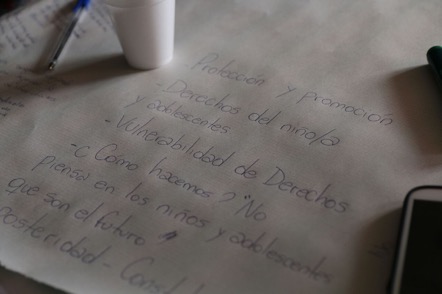 Protección y promoción
- Derechos del niño/a
y adolescentes
- Vulnerabilidad de Derechos
- ¿Como hacemos? "No
piensa en los niños y adolescentes
que son el futuro"
Posteridad -